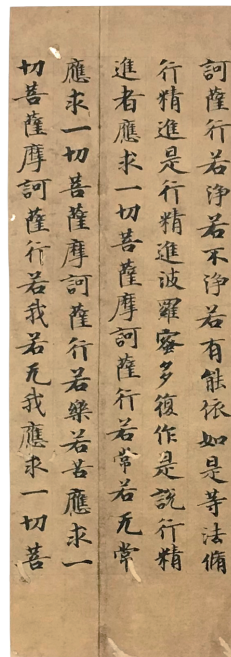 訶薩行若淨若不淨若有能依如是等法脩
行精進是行精進波羅蜜多復作是說行精
進者應求一切菩薩摩訶薩行若常若无常
應求一切菩薩摩訶薩行若樂若苦應求一
切菩薩摩訶薩行若我若无我應求一切菩